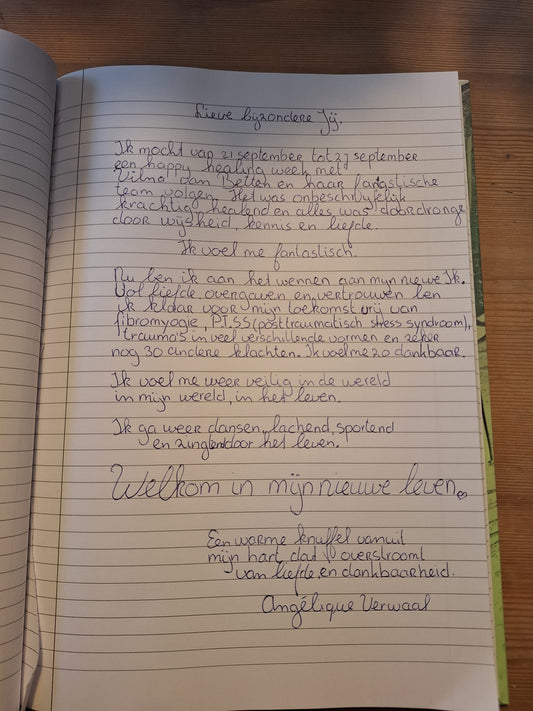 Lieve byzondere Jÿ.
Ik mocht van 21 september tot 27 september
een happy healing week met
Wilma van Betten en haar fantastische
team volgen. Het was onbeschrijfelijk
krachtig, healend en alles was doordrongen
door wijsheid, kennis en liefde.
Ik voel me fantastisch.
Nu ben ik aan het wennen aan mijn nieuwe Ik.
Vol liefde, overgaven en vertrouwen ben
ik klaar voor mijn toekomst vrij van
fibromyogie, P.T.S.S (posttraumatisch stress syndroom),
trauma's in veel verschillende vormen en zeker
nog 30 andere klachten. Ik voel me zo dankbaar.
Ik voel me weer veilig in de wereld
in mijn wereld, in het leven.
Ik ga weer dansen, lachend, sportend
en zingend door het leven.
Welkom in mijn nieuwe leven.
Een warme knuffel vanuit
mijn hart dat overstroomt
van liefde en dankbaarheid.
Angélique Verwaal